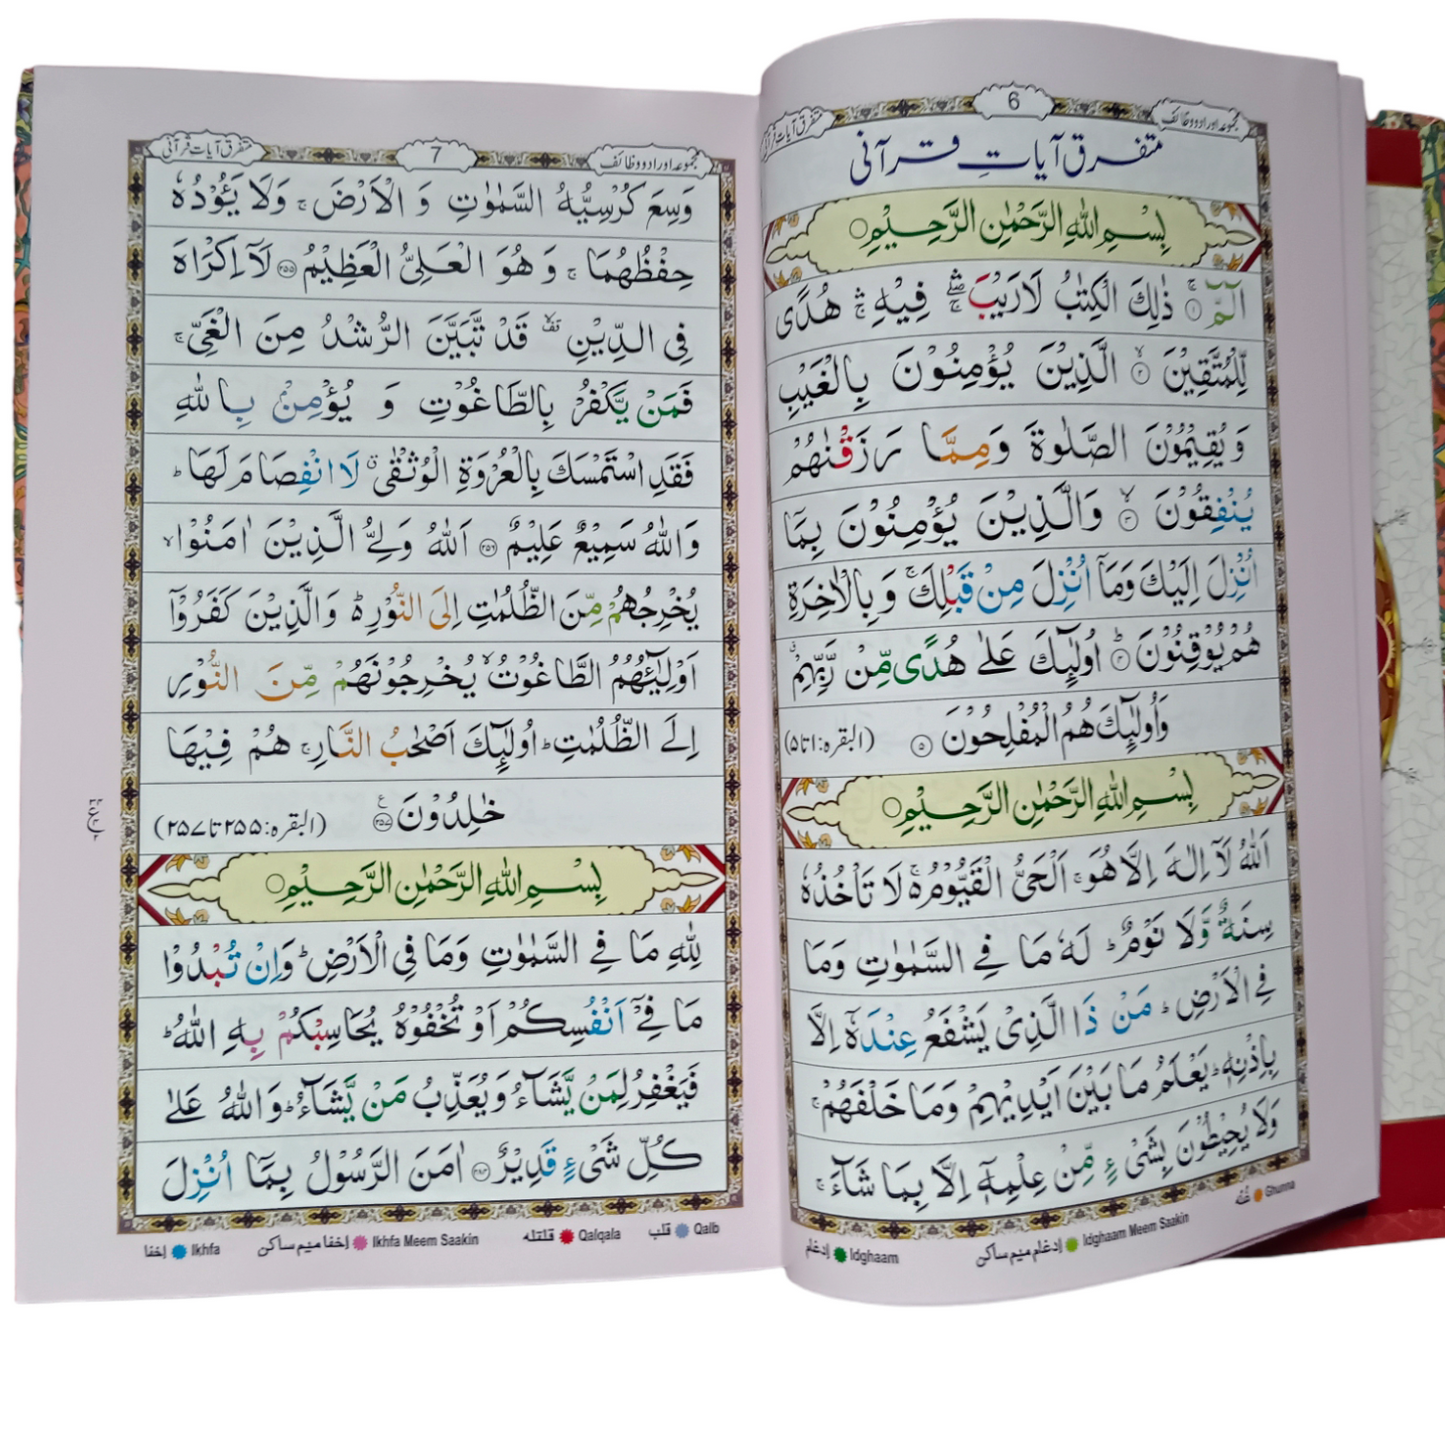 مجموعہ اور اد و وظائف
6
متفرق آیات قرآنی
متفرق آیاتِ قرآنی
بِسْمِ اللّٰهِ الرَّحْمٰنِ الرَّحِيْمِ ○
الٓمّٓ ۚ ۝۱ ذٰلِكَ الْكِتٰبُ لَا رَيْبَ ۛۖۚ فِيْهِ ۛۚ هُدًى
لِّلْمُتَّقِيْنَ ۙ ۝۲ الَّذِيْنَ يُؤْمِنُوْنَ بِالْغَيْبِ
وَ يُقِيْمُوْنَ الصَّلٰوةَ وَمِمَّا رَزَقْنٰهُمْ
يُنْفِقُوْنَ ۙ ۝۳ وَالَّذِيْنَ يُؤْمِنُوْنَ بِمَا
اُنْزِلَ اِلَيْكَ وَمَاۤ اُنْزِلَ مِنْ قَبْلِكَ ۚ وَ بِالْاٰخِرَةِ
هُمْ يُوْقِنُوْنَ ؕ ۝۴ اُولٰٓئِكَ عَلٰى هُدًى مِّنْ رَّبِّهِمْ ۗ
وَاُولٰٓئِكَ هُمُ الْمُفْلِحُوْنَ ۝۵ (البقرہ: ۱ تا ۵)
بِسْمِ اللّٰهِ الرَّحْمٰنِ الرَّحِيْمِ ○
اَللّٰهُ لَاۤ اِلٰهَ اِلَّا هُوَ ۚ اَلْحَيُّ الْقَيُّوْمُ ۚ۬ لَا تَاْخُذُهٗ
سِنَةٌ وَّلَا نَوْمٌ ؕ لَهٗ مَا فِي السَّمٰوٰتِ وَمَا
فِي الْاَرْضِ ؕ مَنْ ذَا الَّذِيْ يَشْفَعُ عِنْدَهٗۤ اِلَّا
بِاِذْنِهٖ ؕ يَعْلَمُ مَا بَيْنَ اَيْدِيْهِمْ وَمَا خَلْفَهُمْ ۚ
وَلَا يُحِيْطُوْنَ بِشَيْءٍ مِّنْ عِلْمِهٖۤ اِلَّا بِمَا شَآءَ ۚ
غُنّہ Ghunna
ادغام میم ساکن Idghaam Meem Saakin
ادغام Idghaam
مجموعہ اور اد و وظائف
7
متفرق آیات قرآنی
وَسِعَ كُرْسِيُّهُ السَّمٰوٰتِ وَ الْاَرْضَ ۚ وَلَا يَـُٔوْدُهٗ
حِفْظُهُمَا ۚ وَ هُوَ الْعَلِيُّ الْعَظِيْمُ ۝۲۵۵ لَاۤ اِكْرَاهَ
فِي الدِّيْنِ ۙ۫ قَدْ تَّبَيَّنَ الرُّشْدُ مِنَ الْغَيِّ ۚ
فَمَنْ يَّكْفُرْ بِالطَّاغُوْتِ وَ يُؤْمِنْۢ بِاللّٰهِ
فَقَدِ اسْتَمْسَكَ بِالْعُرْوَةِ الْوُثْقٰى ۗ لَا انْفِصَامَ لَهَا ؕ
وَاللّٰهُ سَمِيْعٌ عَلِيْمٌ ۝۲۵۶ اَللّٰهُ وَلِيُّ الَّذِيْنَ اٰمَنُوْا ۙ
يُخْرِجُهُمْ مِّنَ الظُّلُمٰتِ اِلَى النُّوْرِ ؕ۬ وَالَّذِيْنَ كَفَرُوْۤا
اَوْلِيٰٓـُٔهُمُ الطَّاغُوْتُ ۙ يُخْرِجُوْنَهُمْ مِّنَ النُّوْرِ
اِلَى الظُّلُمٰتِ ؕ اُولٰٓئِكَ اَصْحٰبُ النَّارِ ۚ هُمْ فِيْهَا
خٰلِدُوْنَ ۝۲۵۷ (البقرہ: ۲۵۵ تا ۲۵۷)
بِسْمِ اللّٰهِ الرَّحْمٰنِ الرَّحِيْمِ ○
لِلّٰهِ مَا فِي السَّمٰوٰتِ وَمَا فِي الْاَرْضِ ؕ وَاِنْ تُبْدُوْا
مَا فِيْۤ اَنْفُسِكُمْ اَوْ تُخْفُوْهُ يُحَاسِبْكُمْ بِهِ اللّٰهُ ؕ
فَيَغْفِرُ لِمَنْ يَّشَآءُ وَ يُعَذِّبُ مَنْ يَّشَآءُ ؕ وَاللّٰهُ عَلٰى
كُلِّ شَيْءٍ قَدِيْرٌ ۝۲۸۴ اٰمَنَ الرَّسُوْلُ بِمَاۤ اُنْزِلَ
قلب Qalb
قلقلہ Qalqala
اخفا میم ساکن Ikhfa Meem Saakin
اخفا Ikhfa